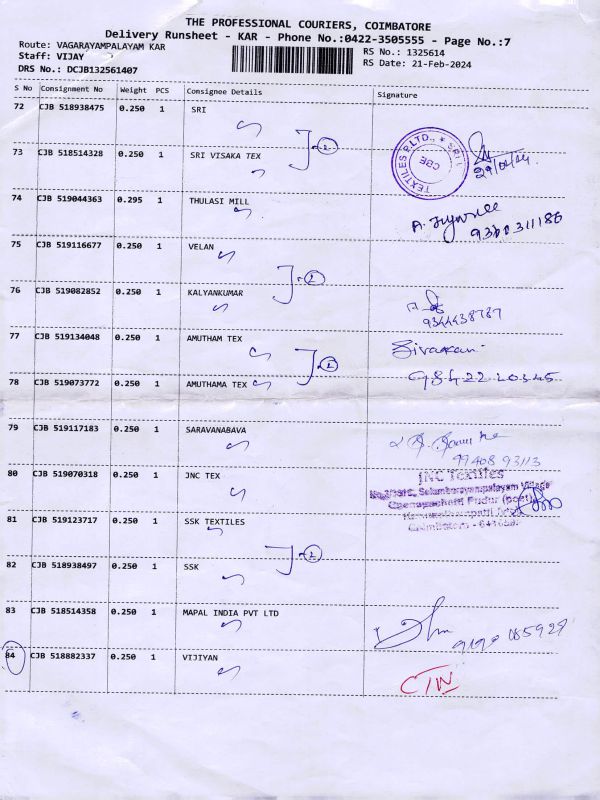 THE PROFESSIONAL COURIERS, COIMBATORE
Delivery Runsheet - KAR - Phone No.:0422-3505555 - Page No.:7
Route: VAGARAYAMPALAYAM KAR
RS No.: 1325614
Staff: VIJAY
RS Date: 21-Feb-2024
DRS No.: DCJB132561407
S No Consignment No Weight PCS Consignee Details Signature
72 CJB 518938475 0.250 1 SRI
2
73 CJB 518514328 0.250 1 SRI VISAKA TEX
TEXTILES P.LTD., * SRI
CBE
74 CJB 519044363 0.295 1 THULASI MILL
75 CJB 519116677 0.250 1 VELAN
2
76 CJB 519082852 0.250 1 KALYANKUMAR
9344438787
77 CJB 519134048 0.250 1 AMUTHAM TEX
2
78 CJB 519073772 0.250 1 AMUTHAMA TEX
79 CJB 519117183 0.250 1 SARAVANABAVA
99408 93113
80 CJB 519070318 0.250 1 JNC TEX
JNC Textiles
81 CJB 519123717 0.250 1 SSK TEXTILES
2
82 CJB 518938497 0.250 1 SSK
83 CJB 518514358 0.250 1 MAPAL INDIA PVT LTD
84 CJB 518882337 0.250 1 VIJIYAN